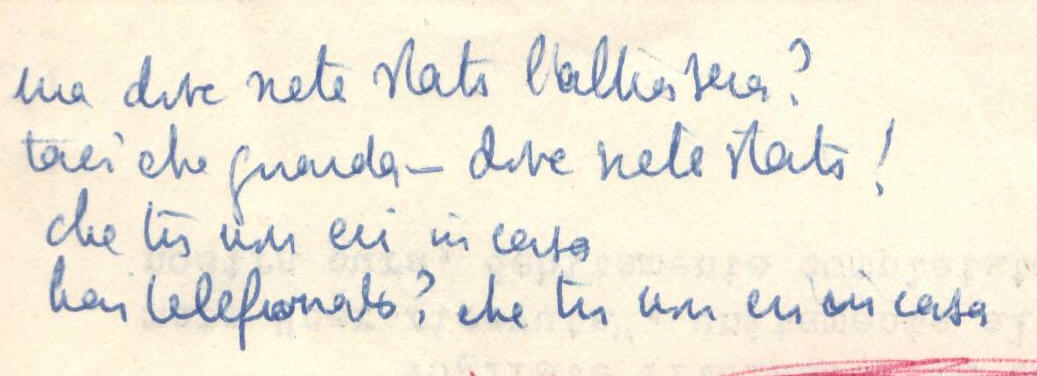 ma dove siete stati l'altra sera?
taci che guarda – dove siete stati!
che tu non eri in casa
hai telefonato? che tu non eri in casa